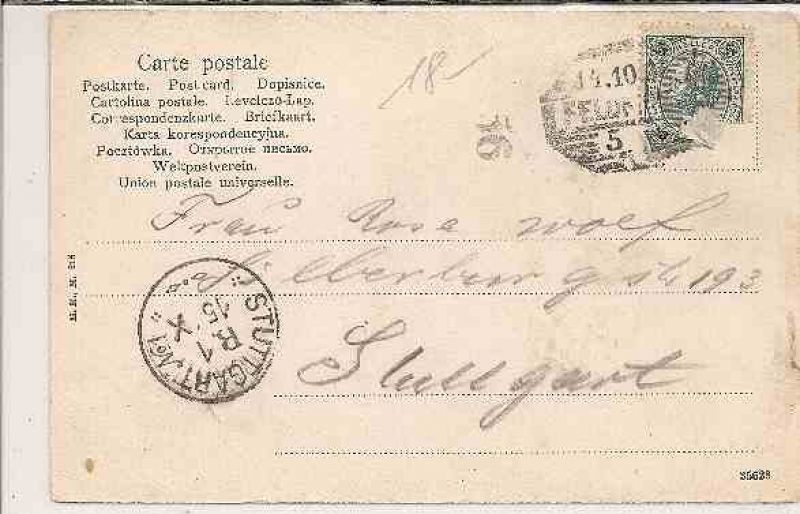 Carte postale
Postkarte. Post card. Dopisnice.
Cartolina postale. Levelező-Lap.
Correspondenzkarte. Briefkaart.
Karta korespondencyjna.
Pocztówka. Открытое письмо.
Weltpostverein.
Union postale universelle.
18
5 5
14.10
FELDK
5
Frau Rosa Wolf
Silberburgstr 193
Stuttgart
STUTTGART. No 1
B 1
X
15
M. M., M. 218
35628